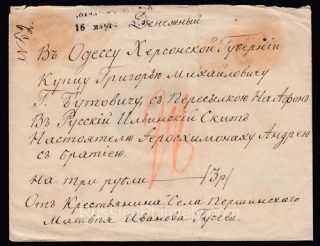 16 МАРТА
Денежный
Въ Одессу Херсонской Губерніи
Купцу Григорью Михайловичу
Г. Бутовичу, съ Пересылкою На Афонъ
Въ Русскій Ильинскій Скитъ
Настоятелю Іеросхимонаху Андрею
съ братіею.
На три рубли 3р
Отъ Крестьянина Села Першинскаго
Матвѣя Иванова Гусева